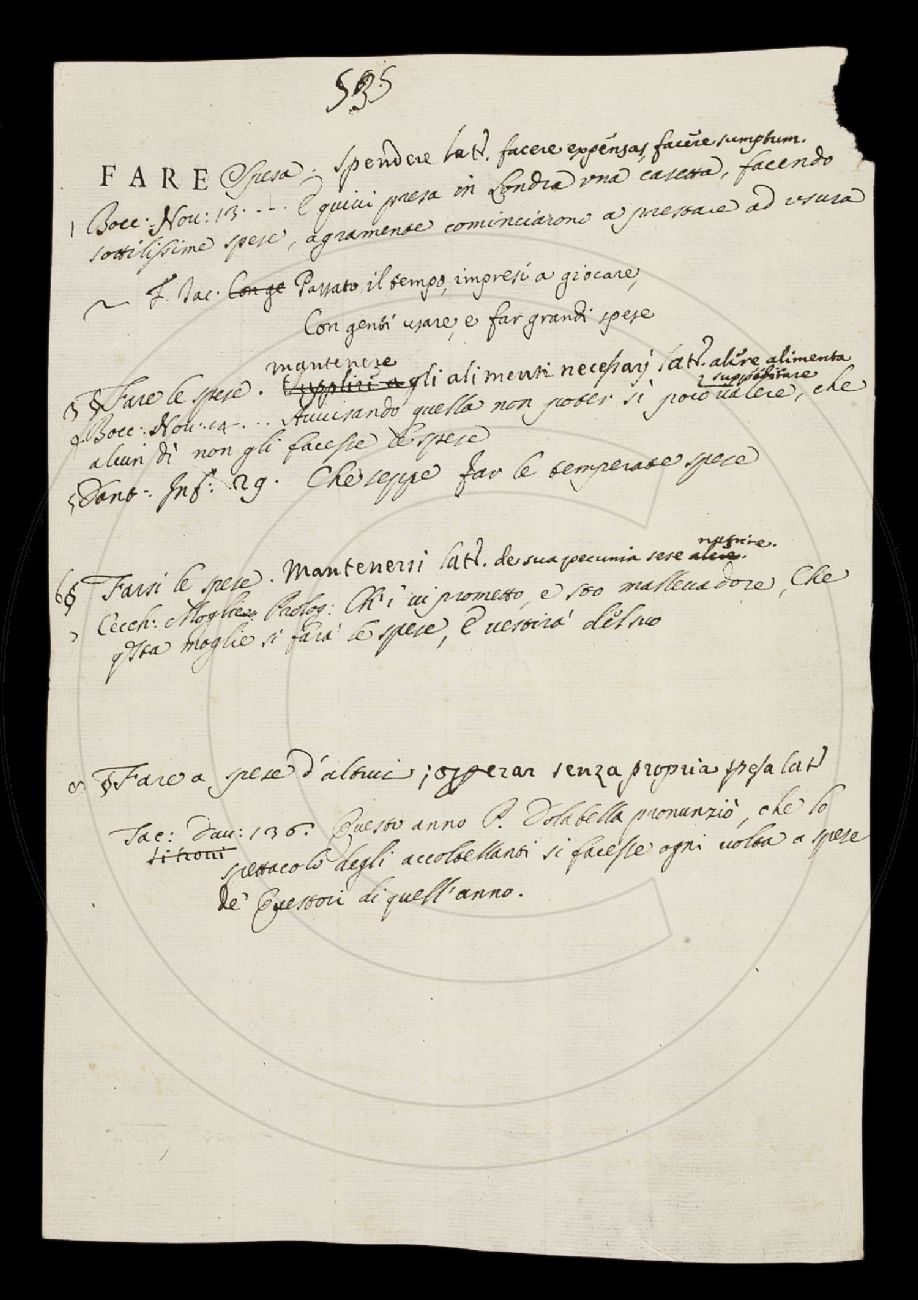 535
FARE Spesa. spendere lat. facere expensas, facere sumptum.
1 Bocc: Nov: 13. ... E quivi presa in Londra una casetta, facendo
sottilissime spese, agramente cominciarono a prestare ad usura
F. Iac. Con ge Passato il tempo, impresi a giocare,
Con genti usare, e far grandi spese
mantenere
3 § Fare le spese. Supplire a gli alimenti necessarj lat. alere alimenta
suppeditare
4 Bocc: Nov: 14. ... Avvisando quella non poter sì poco valere, che
alcun dì non gli facesse le spese
5 Dant: Inf: 29. Che seppe far le temperate spese
nutrire.
6 § Farsi le spese. Mantenersi lat. de sua pecunia sese alere.
7 Cecch: Moglie Prolog: Ch'i' vi prometto, e sto mallevadore, Che
qsta moglie si farà le spese, E vestirà del suo
8 § Fare a spese d'altrui; operar senza propria spesa lat
Tac: Dav: 136. Questo anno P. Dolabella pronunziò, che lo
spettacolo degli accoltellanti si facesse ogni volta a spese
de' Questori di quell'anno.